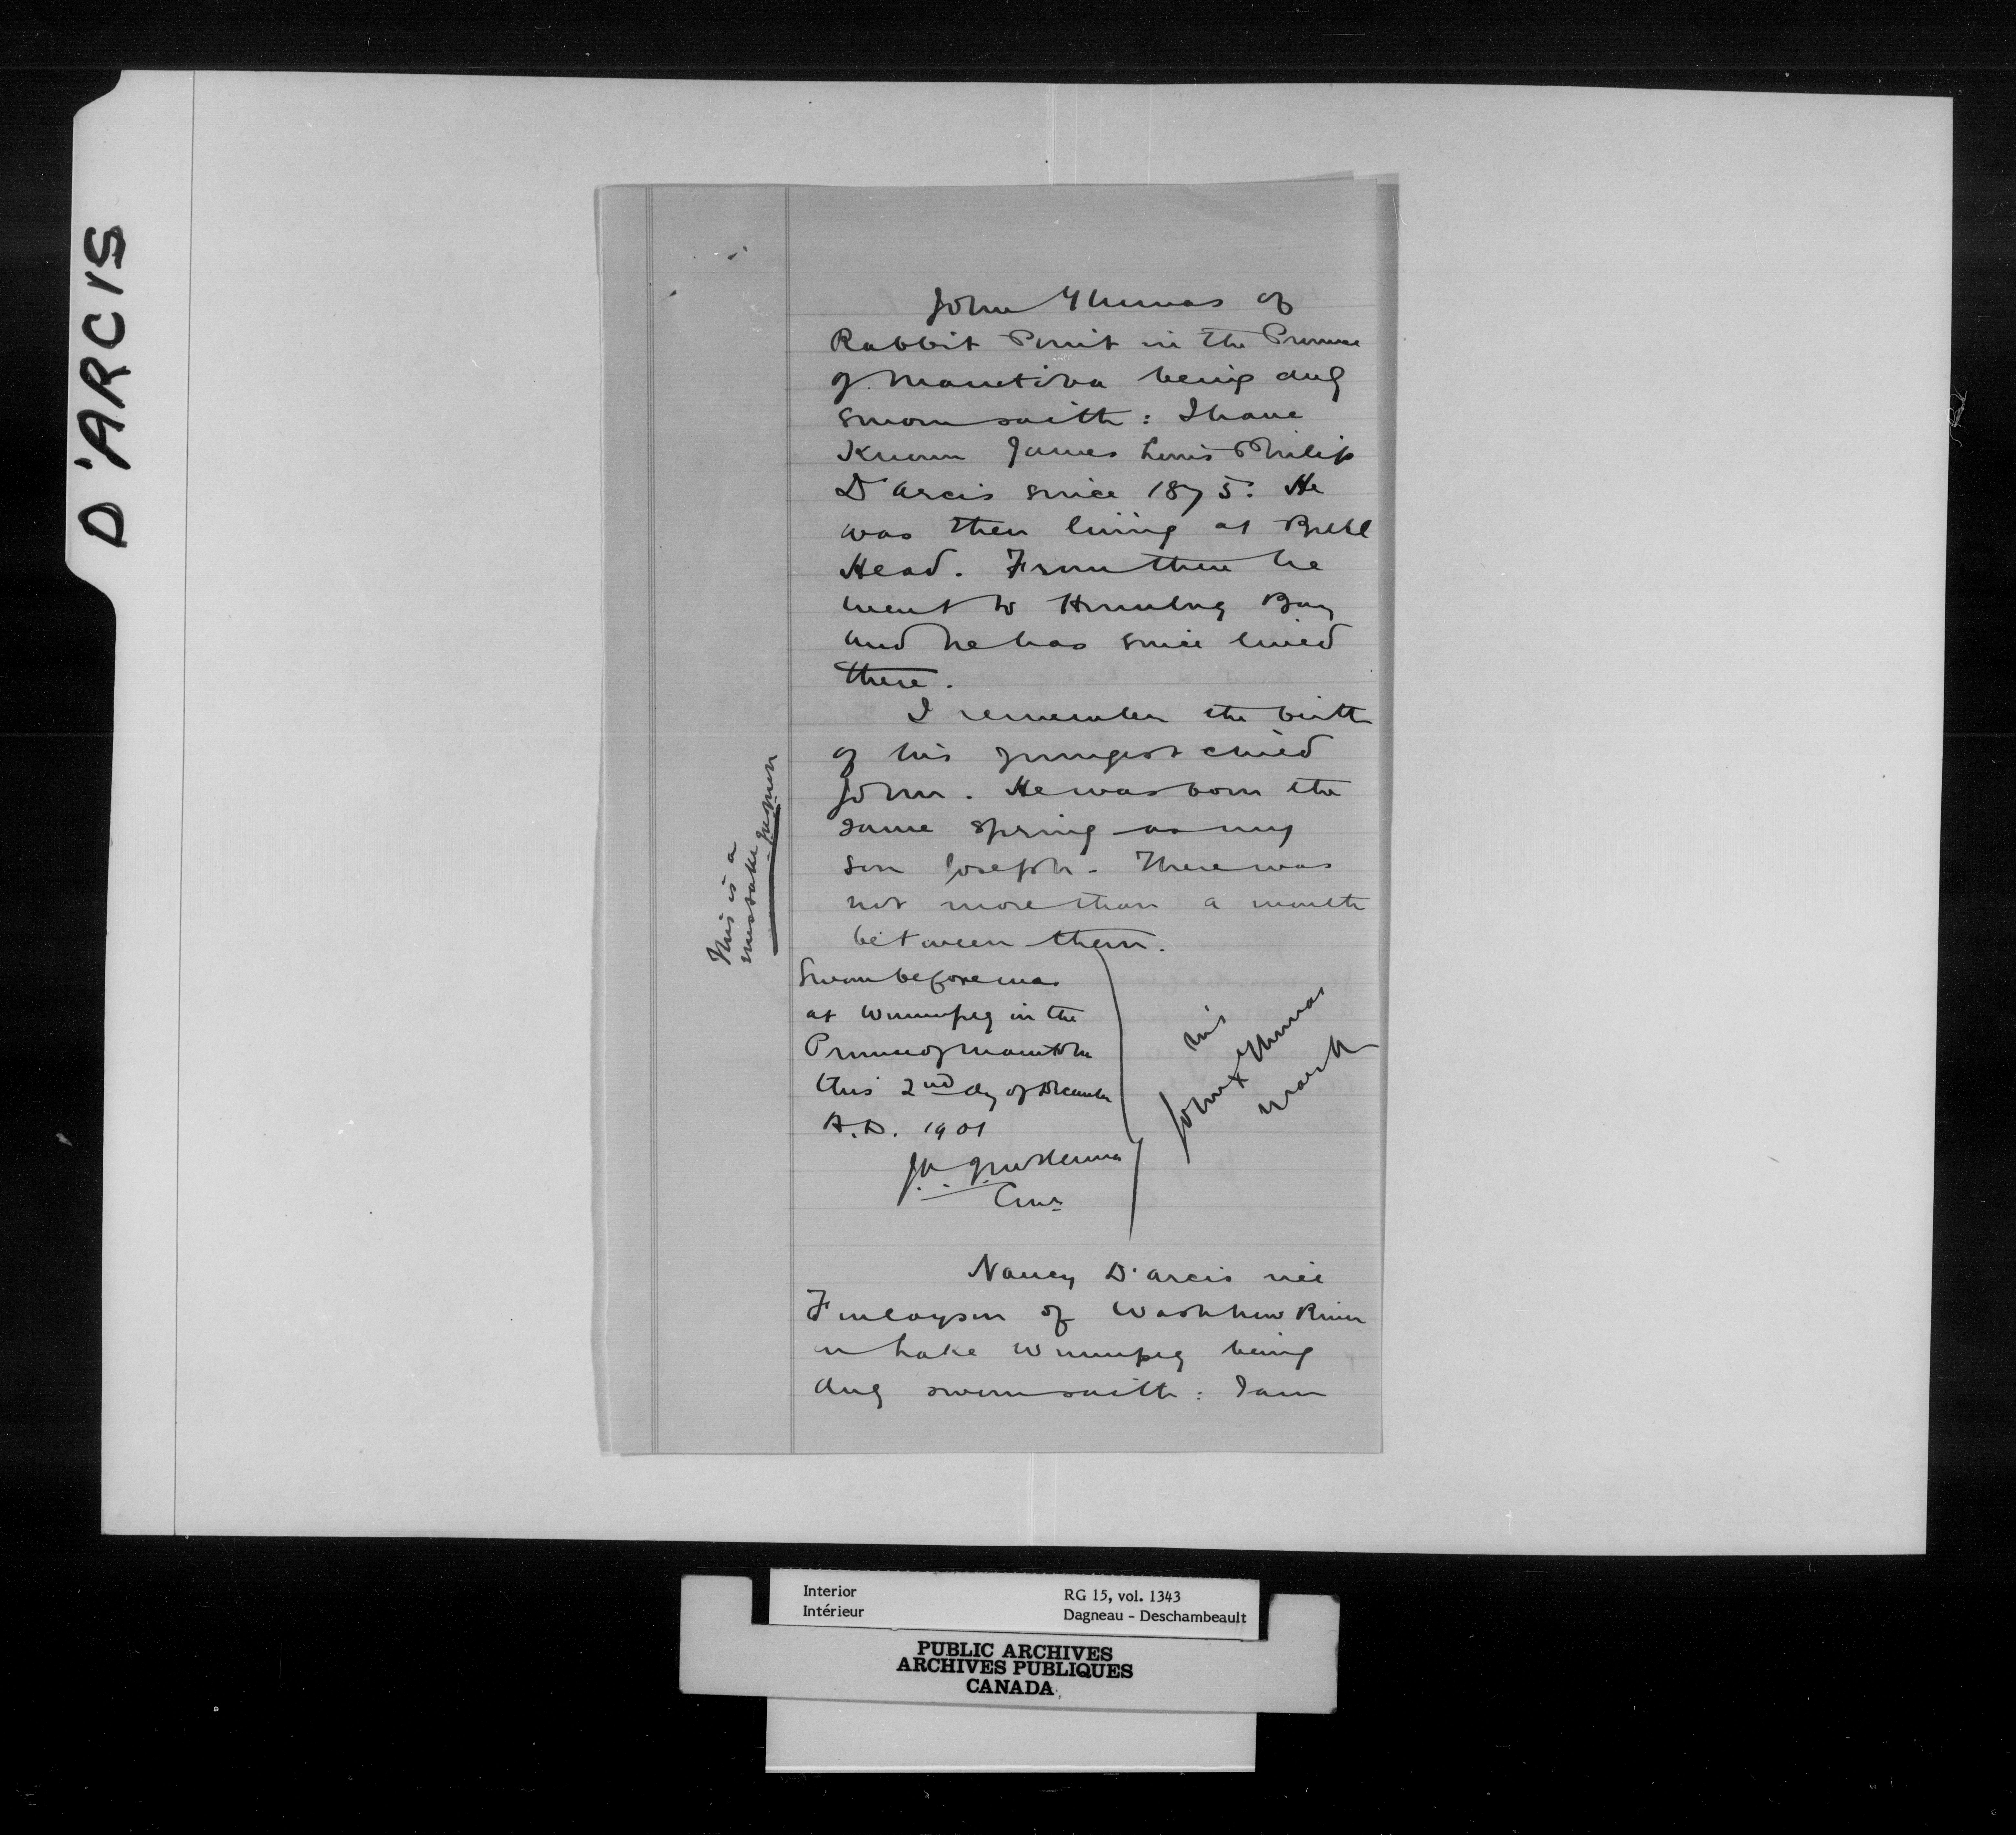 D'ARCIS
John Thomas of
Rabbit Point in the Province
of Manitoba being duly
sworn saith: I have
Known James Louis Philip
D'Arcis since 1875. He
was then living at Bull
Head. From there he
went to Humbug Bay
and he has since lived
there.
I remember the birth
of his youngest child
John. He was born the
same spring as my
son Joseph. There was
not more than a month
between them.
This is a
mistake
Sworn before me
at Winnipeg in the
Province of Manitoba
this 2nd day of December
A.D. 1901
Comr
his
John x Thomas
mark
Nancy D'Arcis née
Finlayson of Washhow River
in Lake Winnipeg being
duly sworn saith: I am
Interior
Intérieur
RG 15, vol. 1343
Dagneau - Deschambeault
PUBLIC ARCHIVES
ARCHIVES PUBLIQUES
CANADA